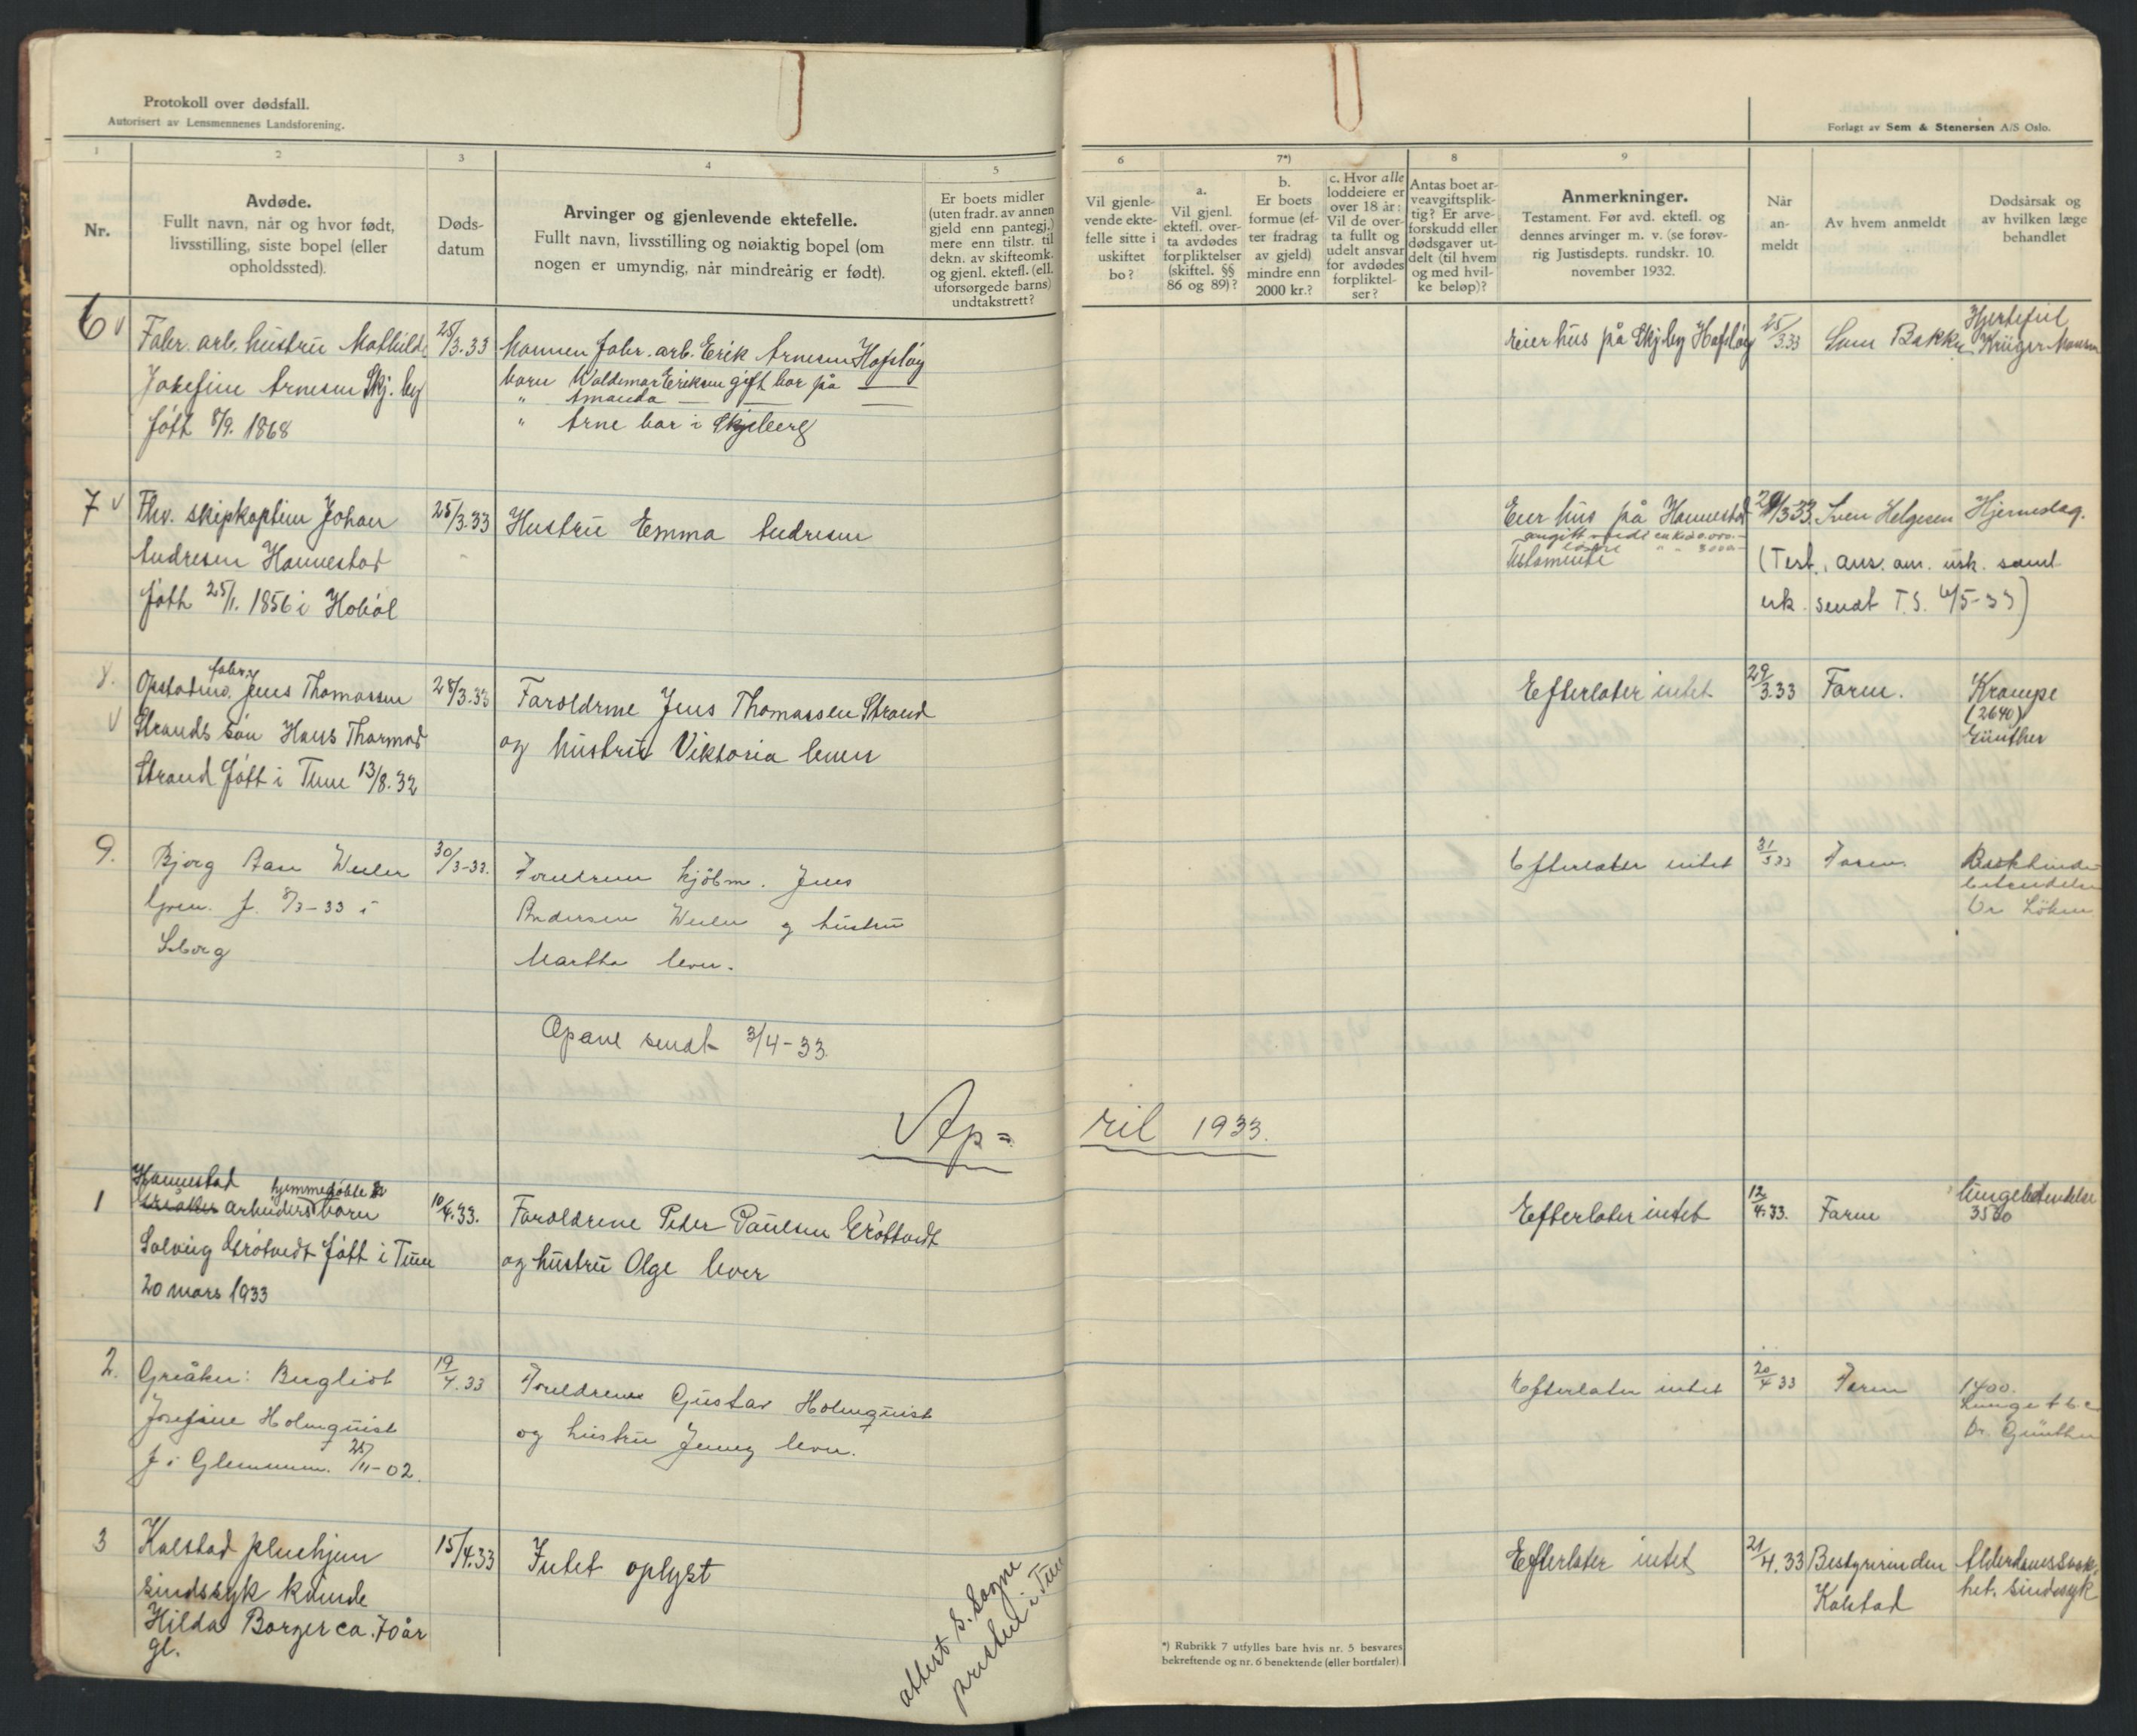 Protokoll over dødsfall.
Autorisert av Lensmennenes Landsforening.
Forlagt av Sem & Stenersen A/S Oslo.
1
2
3
4
5
6
7*)
8
9
Nr.
Avdøde.
Fullt navn, når og hvor født,
livsstilling, siste bopel (eller
opholdssted).
Døds-
datum
Arvinger og gjenlevende ektefelle.
Fullt navn, livsstilling og nøiaktig bopel (om
nogen er umyndig, når mindreårig er født).
Er boets midler
(uten fradr. av annen
gjeld enn pantegj.)
mere enn tilstr. til
dekn. av skifteomk.
og gjenl. ektefl. (ell.
uforsørgede barns)
undtakstrett?
Vil gjenle-
vende ekte-
felle sitte i
uskiftet
bo?
a.
Vil gjenl.
ektefl. over-
ta avdødes
forpliktelser
(skiftel. §§
86 og 89)?
b.
Er boets
formue (ef-
ter fradrag
av gjeld)
mindre enn
2000 kr.?
c. Hvor alle
loddeiere er
over 18 år:
Vil de over-
ta fullt og
udelt ansvar
for avdødes
forpliktel-
ser?
Antas boet ar-
veavgiftsplik-
tig? Er arve-
forskudd eller
dødsgaver ut-
delt (til hvem
og med hvil-
ke beløp)?
Anmerkninger.
Testament. Før avd. ektefl. og
dennes arvinger m. v. (se forøv-
rig Justisdepts. rundskr. 10.
november 1932.
Når
an-
meldt
Av hvem anmeldt
Dødsårsak og
av hvilken læge
behandlet
6 v
Fabr. arb. hustru Mathilde
Josefine Arnesen Skj. by
født 8/9. 1868
25/3.33
Mannen fabr. arb. Erik Arnesen Hafsløy
barn Waldemar Eriksen gift bor på —
" Amanda — — —
" Arne bor i Skjeberg
Eier hus på Skj.by Hafsløy
25/3.33
Sam Bakke
Hjertefeil
Krüger Hansen
7 v
Fhv. skipkaptein Johan
Andresen Hannestad
født 25/1. 1856 i Hobøl
25/3.33
Hustru Emma Andresen
Eier hus på Hannestad
Testamente
29/3.33.
Sven Helgesen
Hjerneslag.
(Test., ans. om. usk. samt
erk. sendt T.S. 4/5-33)
8.
v
fabr.
Opstatuv. Jens Thomassen
Strands søn Hans Thormod
Strand født i Tune 13/8.32
28/3.33
Foreldrene Jens Thomassen Strand
og hustru Viktoria lever
Efterlater intet
29/3.33
Faren.
Krampe
(2640)
Günther
9.
Bjørg Aase Weiler
Green. f. 8/3-33 i
S.borg
30/3-33.
Foreldrene kjøbm. Jens
Andersen Weiler og hustru
Martha lever.
Efterlater intet
31/3 33
Faren
betendelse
Dr Løken
Opgave sendt 3/4-33.
Ap=
ril 1933.
1
Hannestad hjemmedøbte
Greåker arbeiders barn
Solveig Grøtvedt født i Tune
20 mars 1933
10/4.33.
Foreldrene Peder Paulsen Grøtvedt
og hustru Olga lever
Efterlater intet
12/4.33.
Faren
lungebetendelse
3500
2.
Greåker: Bergliot
Josefine Holmquist
f. i Glemmen. 25/11-02.
19/4.33
Foreldrene Gustav Holmquist
og hustru Jenny lever.
Efterlater intet
20/4 33
Faren
1400.
Lunge tbc
Dr. Günther
3
Kalstad pleiehjem
sindssyk kvinde
Hilda Borger ca. 70 år
gl.
15/4.33
Intet oplyst
attest s. Sogne
presten i Tune
Efterlater intet
21/4.33
Bestyrerinden
Kalstad
Alderdomssvak-
het. sindssyk
*) Rubrikk 7 utfylles bare hvis nr. 5 besvares
bekreftende og nr. 6 benektende (eller bortfaler)